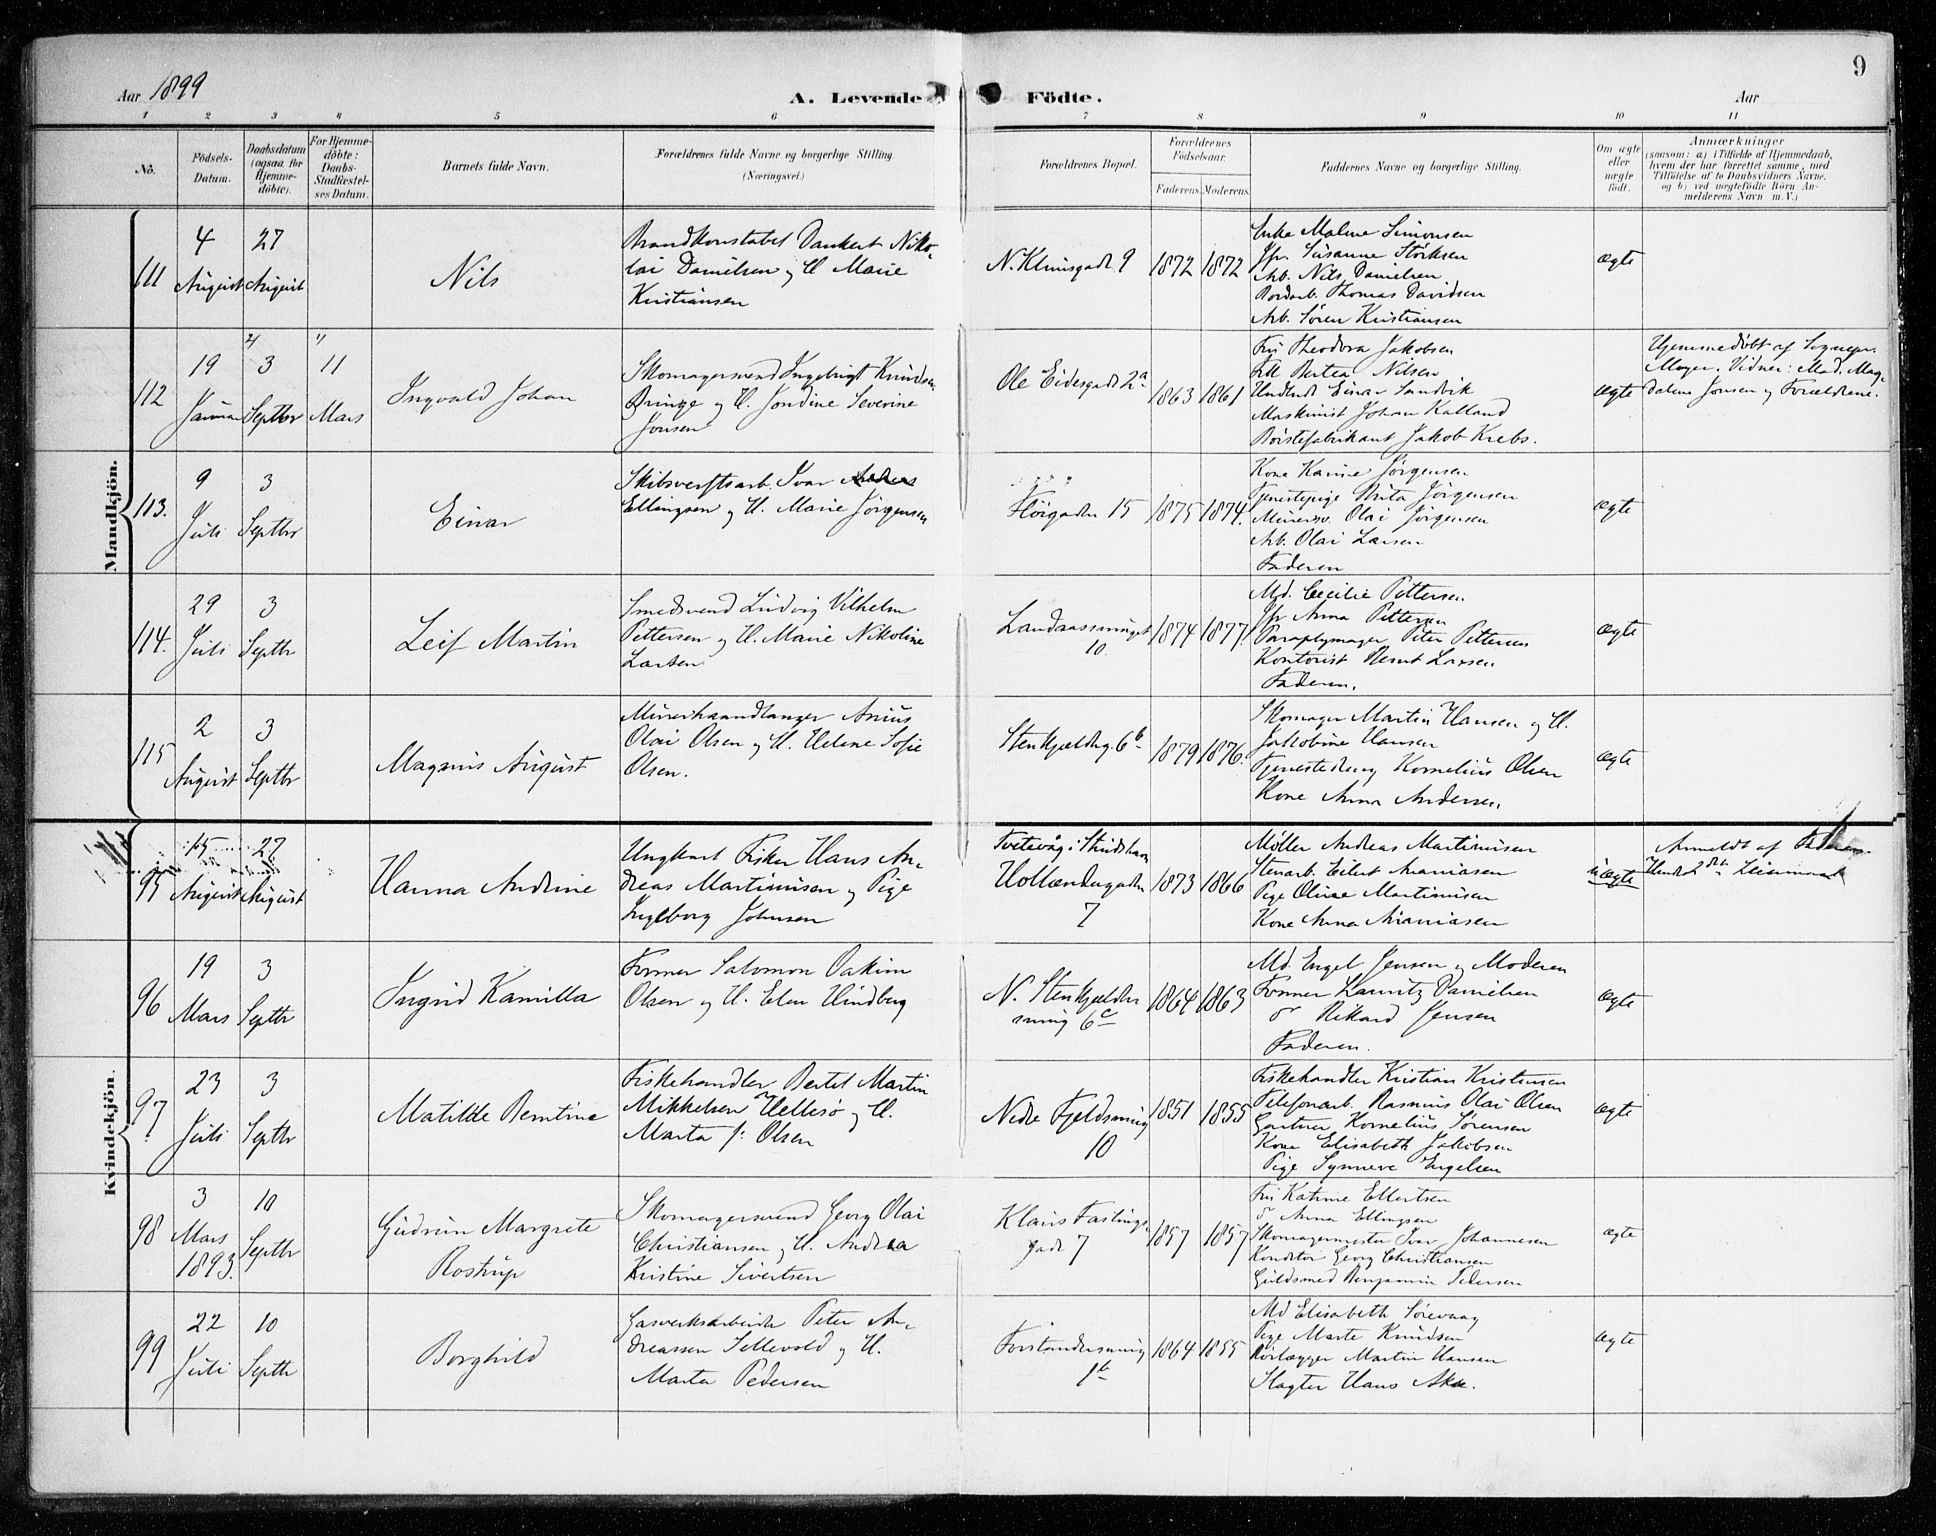 9
Aar 1899
A. Levende
Födte.
Aar
1
2
3
4
5
6
7
8
9
10
11
No.
Födsels-
Datum.
Daabsdatum
(ogsaa for
Hjemme-
döbte).
For Hjemme-
döbte:
Daabs-
Stadfæstel-
ses Datum.
Barnets fulde Navn.
Forældrenes fulde Navne og borgerlige Stilling.
(Næringsvei.)
Forældrenes Bopæl.
Forældrenes
Födselsaar.
Faderens.
Moderens.
Faddernes Navne og borgerlige Stilling.
Om ægte
eller
uægte
födt.
Anmærkninger
(saasom: a) i Tilfælde af Hjemmedaab,
hvem der har forrettet samme, med
Tilföielse af to Daabsvidners Navne.
og b) ved uægtefödte Börn An-
melderens Navn m. V.)
Mandkjön.
111
4
August
27
August
Nils
Brandkonstabel Dankert Niko-
lai Danielsen og H. Marie
Kristiansen
N. Klinsgade 9
1872
1872
Enke Malene Simonsen
Jfr. Susanne Störksen
Arb. Nils Danielsen
Bordarb. Thomas Davidsen
Arb. Sören Kristiansen
ægte
112
19
Januar
2)
3
Septbr
1)
11
Mars
Ingvald Johan
Skomagersvend Ingebrigt Knudsen
Bringe og H. Jondine Severine
Jonsen
Ole Eidesgade 2a
1863
1861
Fru Theodora Jakobsen
Frk Berta Nilsen
Einar Sandvik
Maskinist Johan Kalland
Börstefabrikant Jakob Krebs.
ægte
Hjemmedöbt af Sognepr.
Meyer. Vidner: Mad. Mag-
dalene Jonsen og Forældrene.
113.
9
Juli
3
Septbr
Einar
Skibsverftsarb. Ivar
Ellingsen og H. Marie Jörgensen
Flöigaden 15
1875
1874.
Kone Karine Jörgensen
Tjenestepige Brita Jörgensen
Murersv. Olai Jörgensen
Arb. Olai Larsen
Faderen
ægte
114.
29
Juli
3
Septbr
Leif Martin
Smedsvend Ludvig Vilhelm
Pettersen og H. Marie Nikoline
Larsen
Landaassmuget
10
1874
1877.
Md. Cecilie Pettersen.
Jfr Anna Pettersen
Paraplymager Peter Pettersen
Kontorist Bernt Larsen
Faderen.
ægte
115
2
August
3
Septbr
Magnus August
Murerhaandlanger Anius
Olai Olsen og H. Helene Sofie
Olsen.
Stenkjeldrg. 6b
1879
1876.
Skomager Martin Hansen og H.
Jakobine Hansen
Tjenestedreng Kornelius Olsen
Kone Anna Andersen.
ægte
Kvindekjön.
95
15
August
27
August
Hanna Andrine
Ungkarl Fisker Hans An-
dreas Martinusen og Pige
Ingeborg Johnsen
Hollændergaden
7
1873
1866
Möller Andreas Martinusen
Stenarb. Eilert Ananiasen
Pige Oline Martinusen
Kone Anna Ananiasen
uægte
Anmeldt af Faderen.
96
19
Mars
3
Septbr
Ingrid Kamilla
Former Salomon Oakim
Olsen og H. Elen Hindberg
N. Stenkjelder
smug 6c
1864
1863
Md. Engel Jensen og Moderen
Former Lauritz Danielsen
do Rikard Jensen
Faderen.
ægte
97
23
Juli
3
Septbr
Matilde Berntine
Fiskehandler Bertel Martin
Mikkelsen Hellesö og H.
Marta f. Olsen
Nedre Fjeldsmug
10
1851
1855
Fiskehandler Kristian Kristensen
Telefonarb. Rasmus Olai Olsen
Gartner Kornelius Sörensen
Kone Elisabeth Jakobsen
Pige Synneve Engelsen
ægte
98
3
Mars
1893.
10
Septbr
Gudrun Margrete
Rostrup
Skomagersvend Georg Olai
Christiansen og H. Andrea
Kristine Sivertsen
Klaus Fastings
gade 7
1857
1857
Fru Katrine Ellertsen
do Anna Ellingsen
Skomagermester Ivar Johannesen
Konditor Georg Christiansen
Guldsmed Benjamin Pedersen
ægte
99
22
Juli
10
Septbr
Borghild
Gasverksarbeider Peter An-
dreassen Sellevold og H.
Marta Pedersen
Forstandersmug
1b
1864
1855
Md Elisabeth Sörevaag
Pige Marte Knudsen
Rörlægger Martin Hansen
Slagter Hans Aka.
ægte